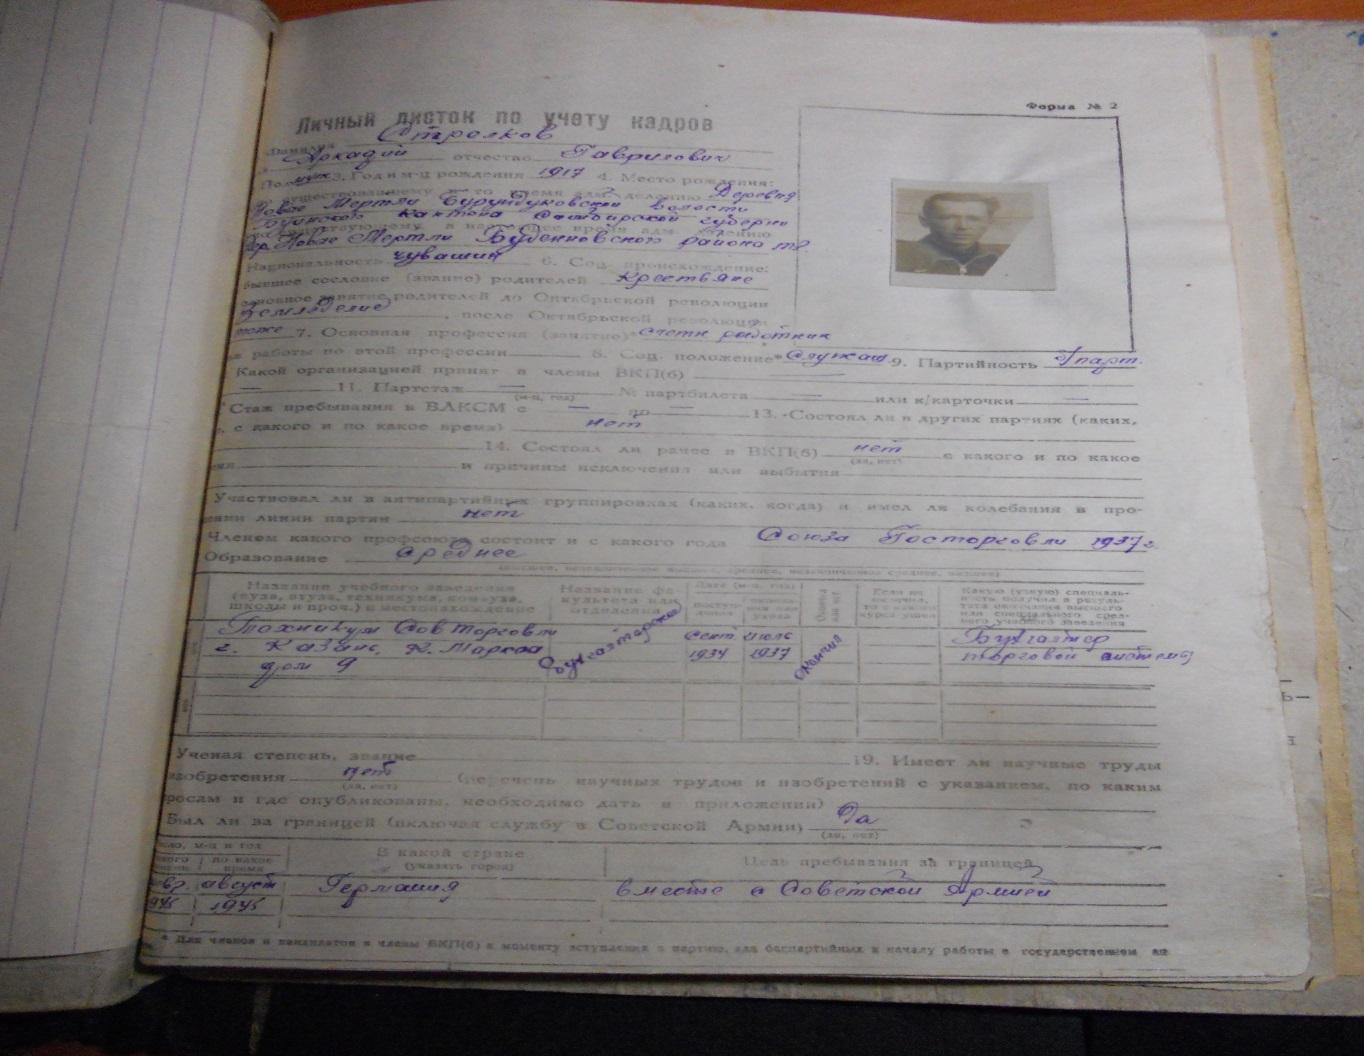 Форма № 2
Личный листок по учету кадров
Фамилия Стрелков
Аркадий отчество Гаврилович
Пол муж 3. Год и м-ц рождения 1917 4. Место рождения:
существовавшему в то время адм. делению Деревня
Новое Мертли Бурундуковской волости
Буинского кантона Симбирской губерни
в настоящее время адм. делению
дер. Новое Мертли Буденновского района
Национальность чуваший 6. Соц. происхождение:
бывшее сословие (звание) родителей Крестьяне
основное занятие родителей до Октябрьской революции
Земледелие, после Октябрьской революции
тоже 7. Основная профессия (занятие)* счетн работник
ж работы по этой профессии 8. Соц. положение* Служащ. 9. Партийность б/парт.
Какой организацией принят в члены ВКП(б) —
— 11. Партстаж — № партбилета — или к/карточки —
(м-ц, год)
Стаж пребывания в ВЛКСМ с — по — 13. Состоял ли в других партиях (каких,
, с какого и по какое время) нет
14. Состоял ли ранее в ВКП(б) нет с какого и по какое
(да, нет)
мя и причины исключения или выбытия
Участвовал ли в антипартийных группировках (каких, когда) и имел ли колебания в про-
ении линии партии нет
Членом какого профсоюза состоит и с какого года Союза Госторговли 1937 г.
Образование среднее
Название учебного заведения Название фа- Дата (м-ц, год) Если не Какую (узкую) специаль-
(вуза, втуза, техникума, ком-вуза, культета или окончил, ность получил в резуль-
школы и проч.) и местонахождение отделения поступ- то с какого тате окончания высшего
ления курса ушел или специального сред-
него учебного заведения
Техникум Сов торговли бухгалтерское сент июль окончил Бухгалтер
г. Казань, К. Маркса 1934 1937 торговой системы
дом 9
Ученая степень, звание 19. Имеет ли научные труды
изобретения нет (перечень научных трудов и изобретений с указанием, по каким
(да, нет)
росам и где опубликованы, необходимо дать в приложении)
Был ли за границей (включая службу в Советской Армии) Да
(да, нет)
исло, м-ц и год В какой стране Цель пребывания за границей
какого по какое (указать город)
время
август Германия вместе с Советской Армией
1945 1945
* Для членов и кандидатов в члены ВКП(б) к моменту вступления в партию, для беспартийных к началу работы в государственном ап